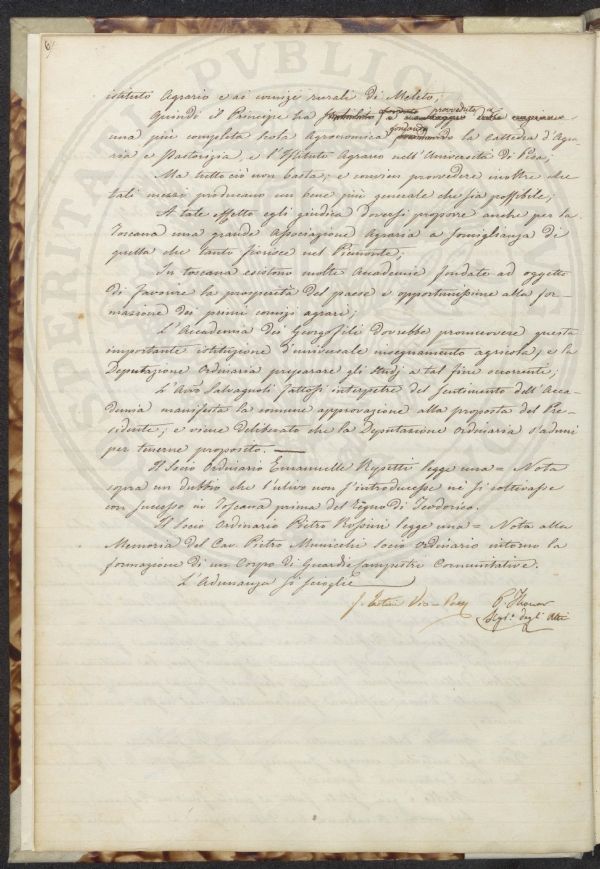 6/
istituto Agrario e ai comizi rurali di Meleto;
Quindi il Principe ha provveduto a
una più completa scola Agronomica fondando la Cattedra d'Agra-
ria e Pastorizia, e l'Istituto Agrario nell'Università di Pisa;
Ma tutto ciò non basta; e convien provvedere inoltre che
tali mezzi producano un bene più generale che sia possibile;
A tale effetto egli giudica doversi proporre anche per la
Toscana una grande Associazione Agraria a somiglianza di
quella che tanto fiorisce nel Piemonte;
In toscana esistono molte Accademie fondate ad oggetto
di favorire la prosperità del paese e opportunissime alla for-
mazione dei primi comizi agrari;
L'Accademia dei Georgofili dovrebbe promuovere questa
importante istituzione d'universale insegnamento agricola, e la
Deputazione Ordinaria preparare gli studj a tal fine occorrenti;
L'Avv. Salvagnoli fattosi interpetre del sentimento dell'Acca-
demia manifesta la comune approvazione alla proposta del Pre-
sidente; e viene deliberato che la Deputazione ordinaria s'aduni
per tenerne proposito. —
Il Socio Ordinario Emanuelle Repetti legge una = Nota
sopra un dubbio che l'ulivo non s'introducesse nè si coltivasse
con successo in Toscana prima del regno di Teodorico.
Il Socio Ordinario Pietro Rossini legge una = Nota alla
Memoria del Cav. Pietro Municchi socio Ordinario intorno la
formazione di un Corpo di Guardie Campestri Comunitative.
L'Adunanza si scioglie
Vice-Pres
P. Thouar
Seg.° degli Atti
PROSPERITATI PVBLICAE